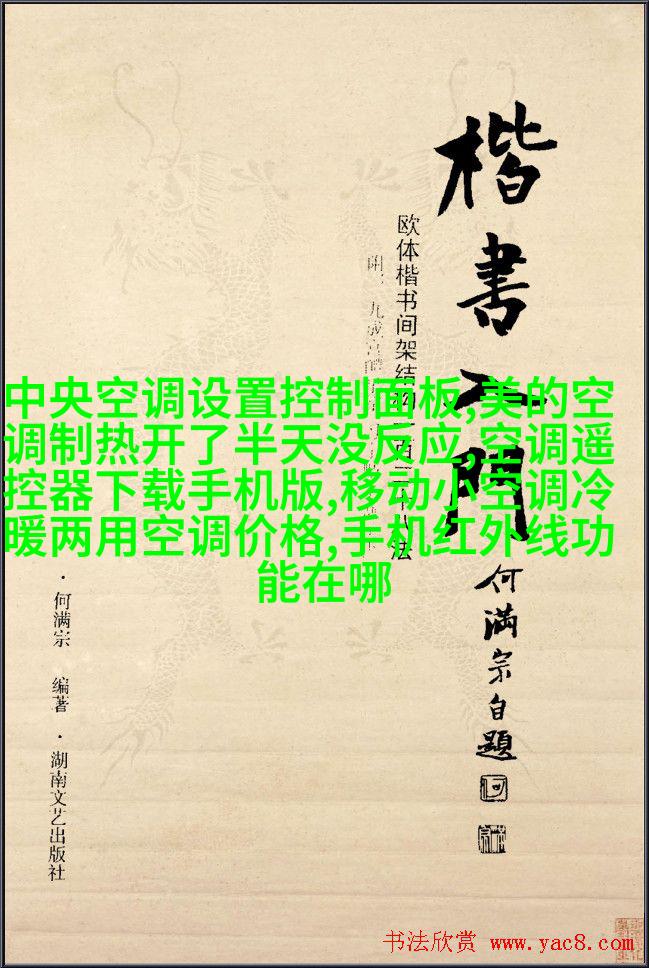 楷書入門
欧体楷书间架结构一百二十八法
何满宗自题
·何满宗 编著·湖南文艺出版社
中央空调设置控制面板,美的空
调制热开了半天没反应,空调遥
控器下载手机版,移动小空调冷
暖两用空调价格,手机红外线功
能在哪
书法欣赏 www.yac8.com